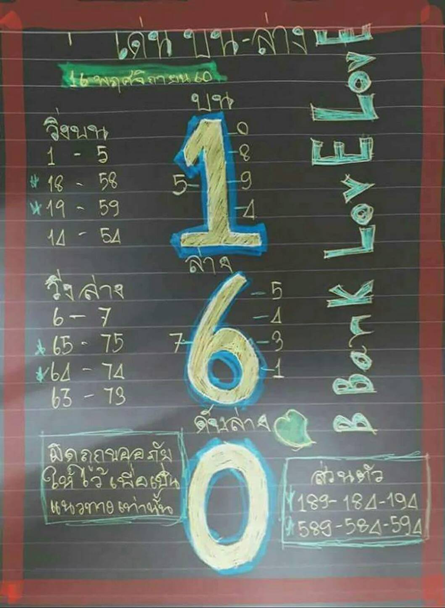 เด่น บน-ล่าง
16 พฤศจิกายน 60
บน
วิ่งบน
1 - 5
18 - 58
19 - 59
14 - 54
5-1
-0
-8
-9
-4
ล่าง
วิ่งล่าง
6 - 7
65 - 75
64 - 74
63 - 73
7-6
-5
-4
-3
-1
ดับล่าง
0
ผิดถูกขออภัย
ให้ไว้เพื่อเป็น
แนวทางเท่านั้น
ส่วนตัว
189-184-194
589-584-594
B Bank LovE LovE